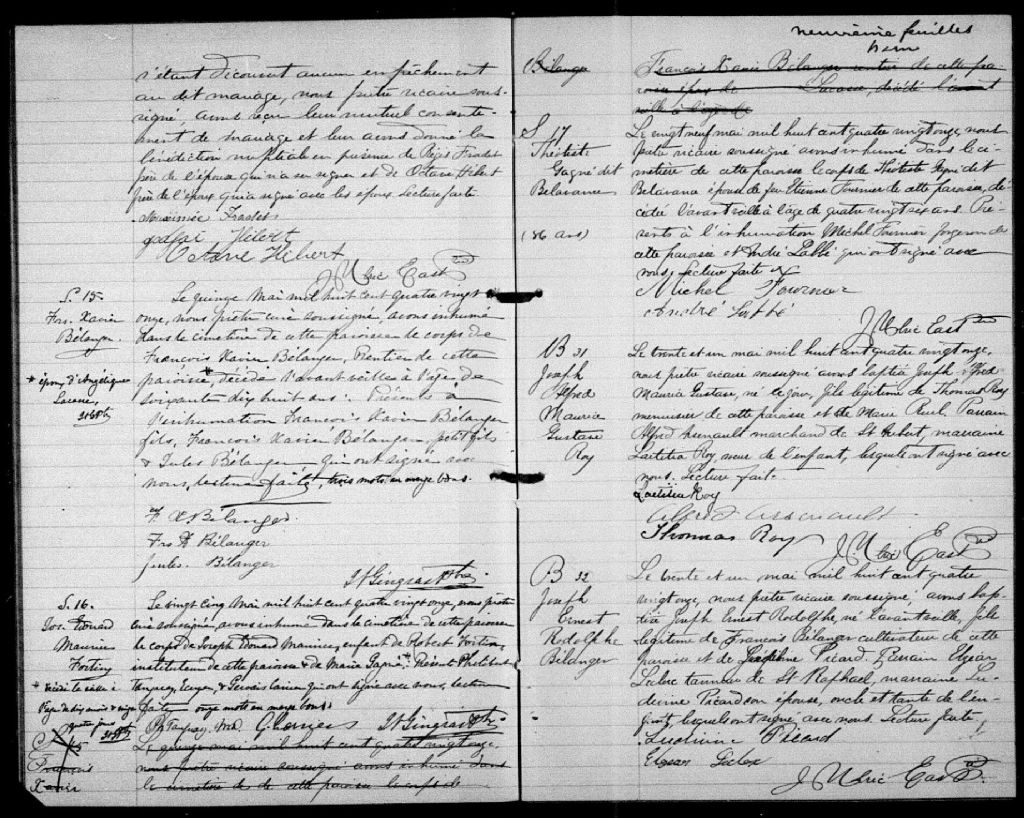 s'étant découvert aucun empêchement
au dit mariage, nous prêtre vicaire sous-
signé, avons reçu leur mutuel consente-
ment de mariage et leur avons donné la
bénédiction nuptiale en présence de Régis Fradet
père de l'épouse qui n'a su signer et de Octave Hébert
frère de l'époux qui a signé avec les époux Lecture faite
Fradet
Hébert
Octave Hébert
J Ulric East Ptre
S. 15.
Frs. Xavier
Bélanger
* époux d'Angélique
Lacasse,
Le quinze Mai mil huit cent quatre vingt
onze, nous, prêtre curé soussigné, avons inhumé
dans le cimetière de cette paroisse le corps de
François Xavier Bélanger, Rentier de cette
paroisse * décédé l'avant veille à l'âge de
soixante dix huit ans. Présents à
l'inhumation François Xavier Bélanger
fils, François Xavier Bélanger, petit fils
& Jules Bélanger qui ont signé avec
nous, lecture faite, trois mots en marge bons.
F. X. Bélanger
Frs X Bélanger
Jules Bélanger
Gingras Ptre
S. 16.
Jos. Edouard
Maurice
Fortin
* décédé la veille à
l'âge de dix mois et vingt
quatre jours
Le vingt cinq Mai mil huit cent quatre vingt onze, nous prêtre
curé soussigné, avons inhumé dans le cimetière de cette paroisse
le corps de Joseph Edouard Maurice, enfant de Robert Fortin,
instituteur de cette paroisse & de Marie *. Présents Philibert
Tanguay, & qui ont signé avec nous, lecture
faite, onze mots en marge bons.
Tanguay, Md. Gingras Ptre
S 15
François
Xavier
Le quinze mai mil huit cent quatre vingt onze,
nous prêtre vicaire soussigné avons inhumé dans
le cimetière de de cette paroisse le corps de
neuvième feuillet
Bélanger
François Xavier Bélanger rentier de cette pa-
roisse époux de Lacasse, décédé l'avant
veille à l'âge de
S 17
Théotiste
Gagné dit
Belavance
(86 ans)
Le vingt neuf mai mil huit cent quatre vingt onze, nous
prêtre vicaire soussigné avons inhumé dans le ci-
metière de cette paroisse le corps de Théotiste Gagné dit
Belavance épouse de feu Etienne Fournier de cette paroisse, dé-
cédée l'avant veille à l'âge de quatre vingt six ans. Pré-
sents à l'inhumation Michel Fournier forgeron de
cette paroisse et André Labbé qui ont signé avec
nous lecture faite
Michel Fournier
André Labbé
J Ulric East Ptre
B 31
Joseph
Alfred
Maurice
Gustave
Roy
Le trente et un mai mil huit cent quatre vingt onze,
nous prêtre vicaire soussigné avons baptisé Joseph Alfred
Maurice Gustave, né le jour, fils légitime de Thomas Roy
menuisier de cette paroisse et de Marie Parrain
Alfred Arsenault marchand de St Hubert, marraine
Laetitia Roy, soeur de l'enfant, lesquels ont signé avec
nous. Lecture faite.
Laetitia Roy
Alfred Arsenault
Thomas Roy J Ulric East Ptre
B 32
Joseph
Ernest
Rodolphe
Bélanger
Le trente et un mai mil huit cent quatre
vingt onze, nous prêtre vicaire soussigné, avons bap-
tisé Joseph Ernest Rodolphe, né l'avant veille, fils
légitime de François Bélanger cultivateur de cette
paroisse et de Picard. Parrain Elzéar
Leclerc tanneur de St Raphael, marraine Lu-
divine Picard son épouse, oncle et tante de l'en-
fant, lesquels ont signé avec nous Lecture faite,
Ludivine Picard
Elzear Leclerc
J Ulric East Ptre